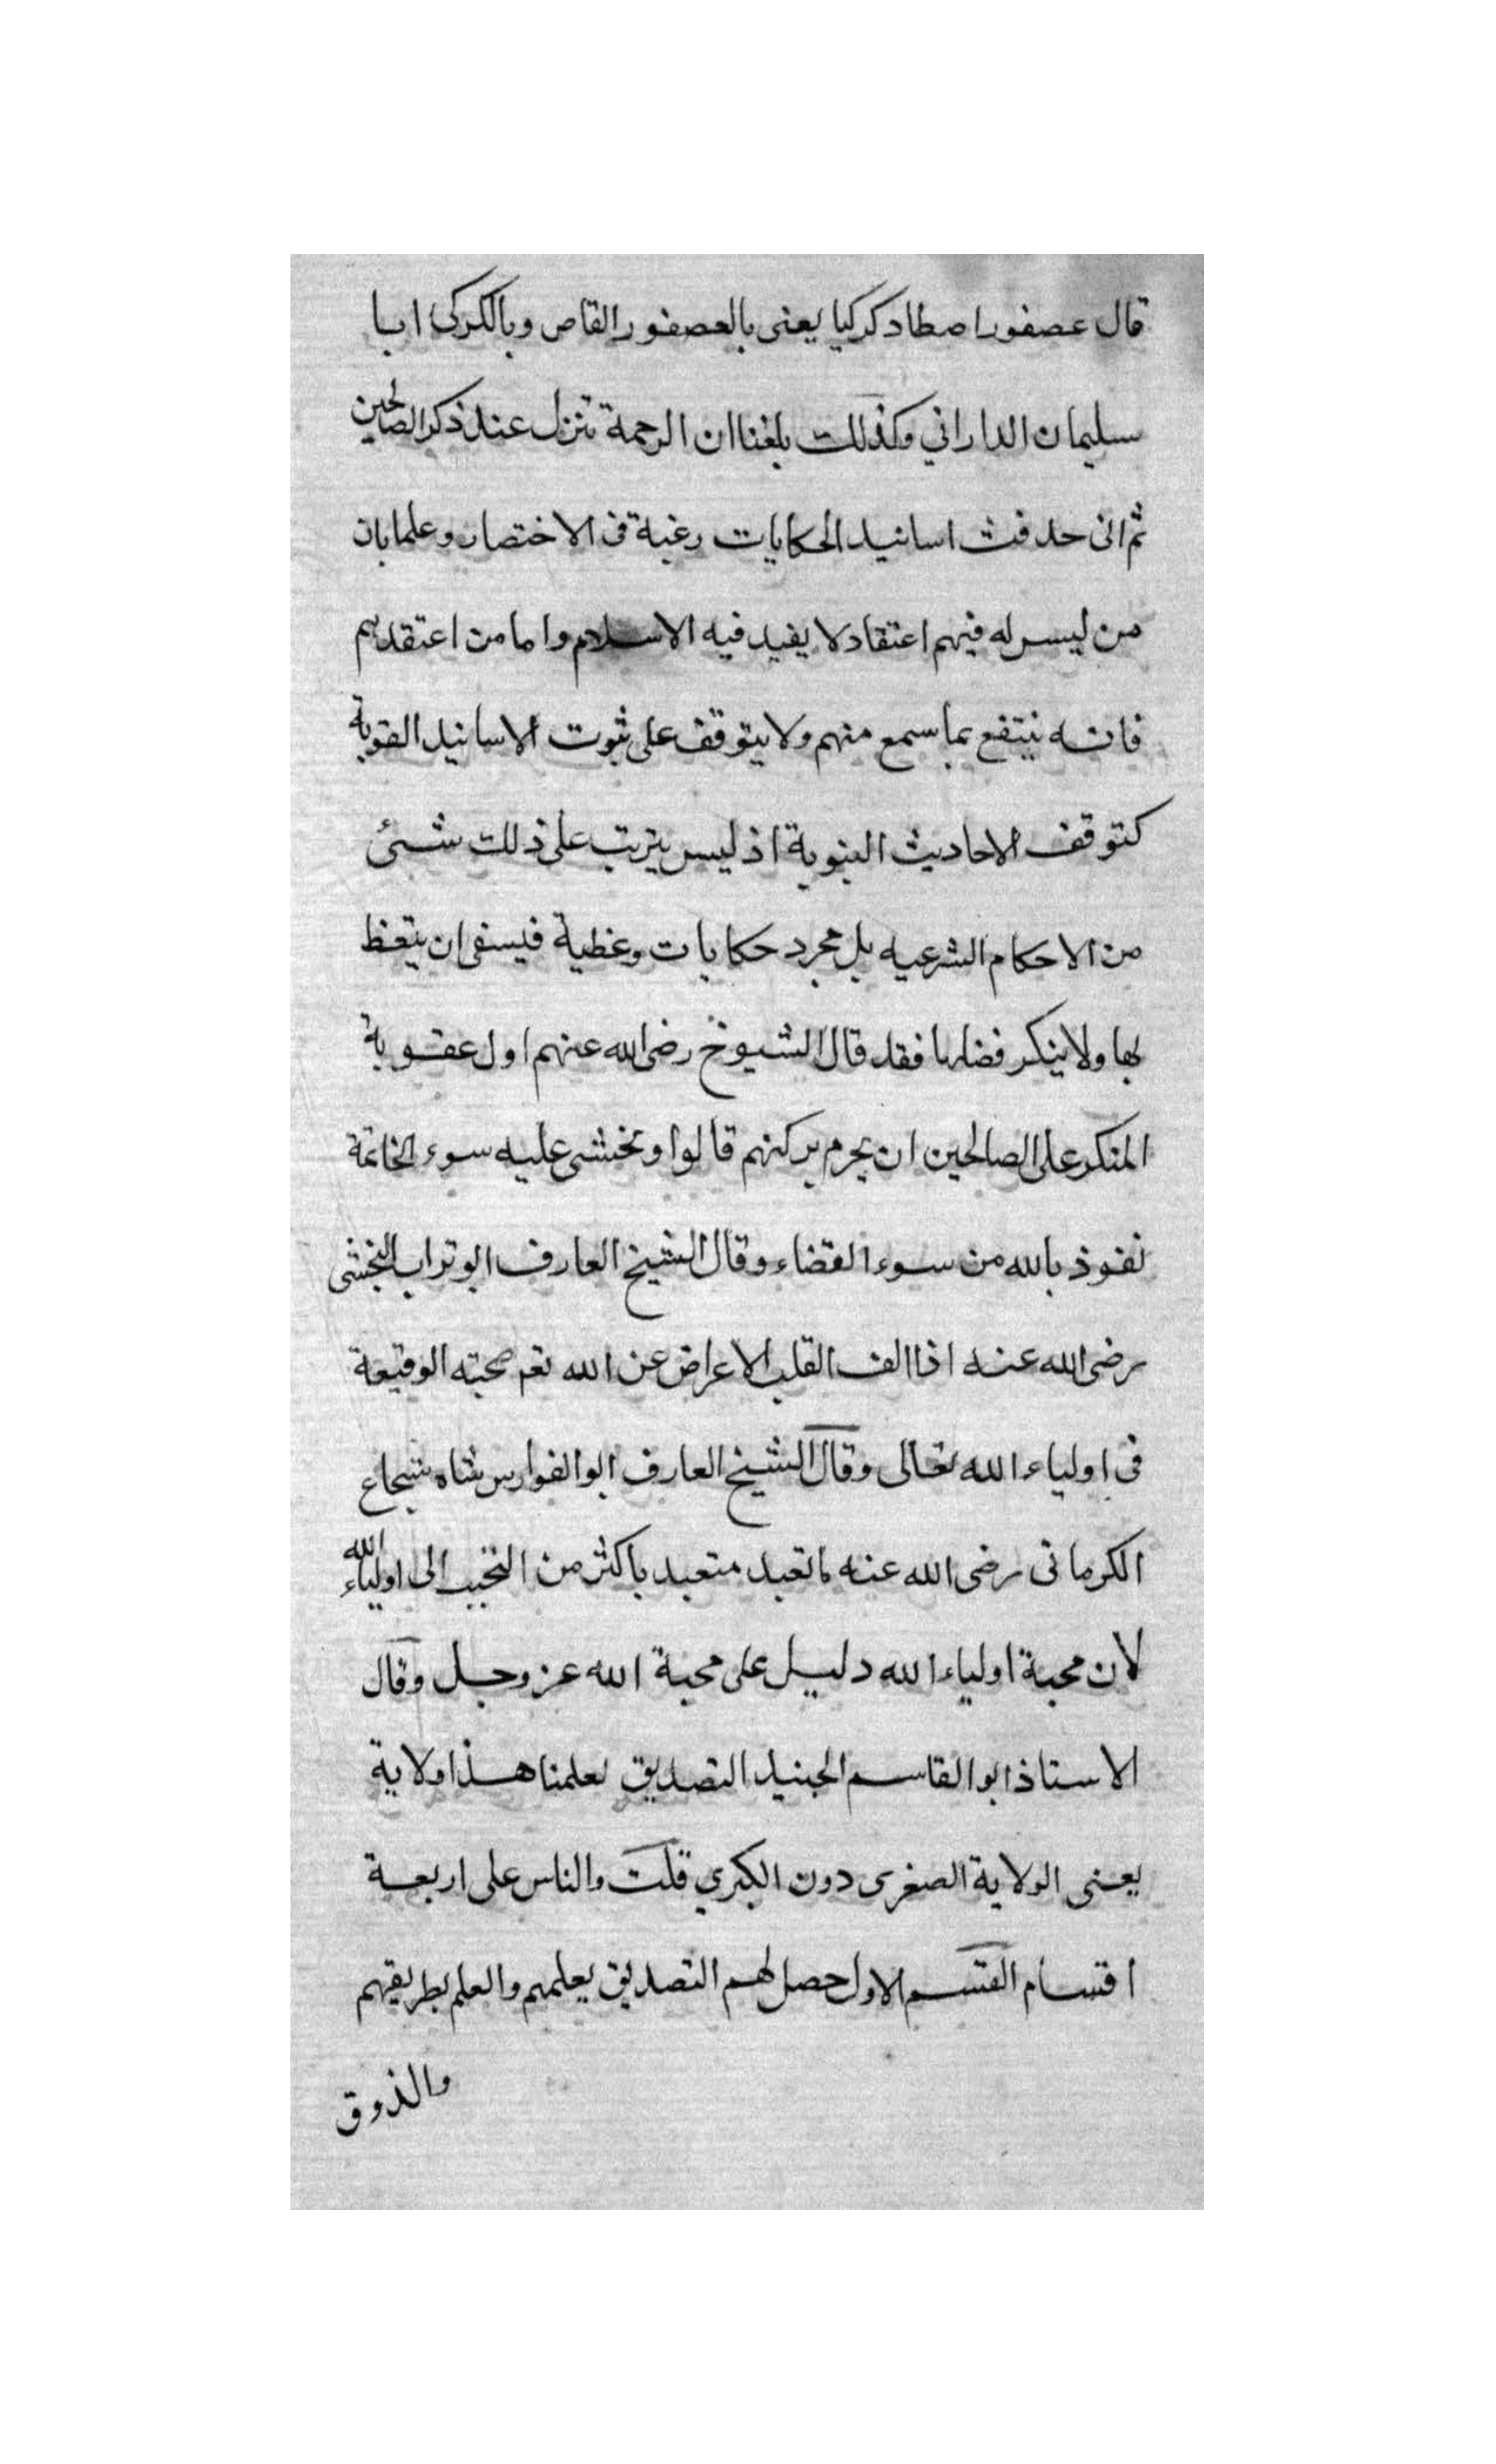 قال عصفورا صطاد كركيا يعنى بالعصفور القاص وبالكركى ابا
سليمان الداراني وكذلك بلغنا ان الرحمة تنزل عند ذكر الصالحين
ثم انى حذفت اسانيد الحكايات رغبة فى الاختصار وعلما بان
من ليس له فيهم اعتقاد لا يفيد فيه الاسلام واما من اعتقدهم
فانه ينتفع بما سمع منهم ولا يتوقف على ثبوت الاسانيد القوية
كتوقف الاحاديث النبوية اذ ليس يترتب على ذلك شئى
من الاحكام الشرعيه بل مجرد حكايات وعظية فينبغى ان يتعظ
بها ولا ينكر فضلها فقد قال الشيوخ رضى الله عنهم اول عقوبة
المنكر على الصالحين ان يحرم بركتهم قالوا ونخشى عليه سوء الخاتمة
نعوذ بالله من سوء القضاء وقال الشيخ العارف ابو تراب النخشبى
رضى الله عنه اذا الف القلب الاعراض عن الله نعم صحبته الوقيعة
فى اولياء الله تعالى وقال الشيخ العارف ابو الفوارس شاه شجاع
الكرمانى رضى الله عنه ما تعبد متعبد باكثر من التحبب الى اولياء الله
لان محبة اولياء الله دليل على محبة الله عز وجل وقال
الاستاذ ابو القاسم الجنيد التصديق بعلمنا هذا ولاية
يعنى الولاية الصغرى دون الكبرى قلت والناس على اربعة
اقسام القسم الاول حصل لهم التصديق بعلمهم والعلم بطريقهم
والذوق